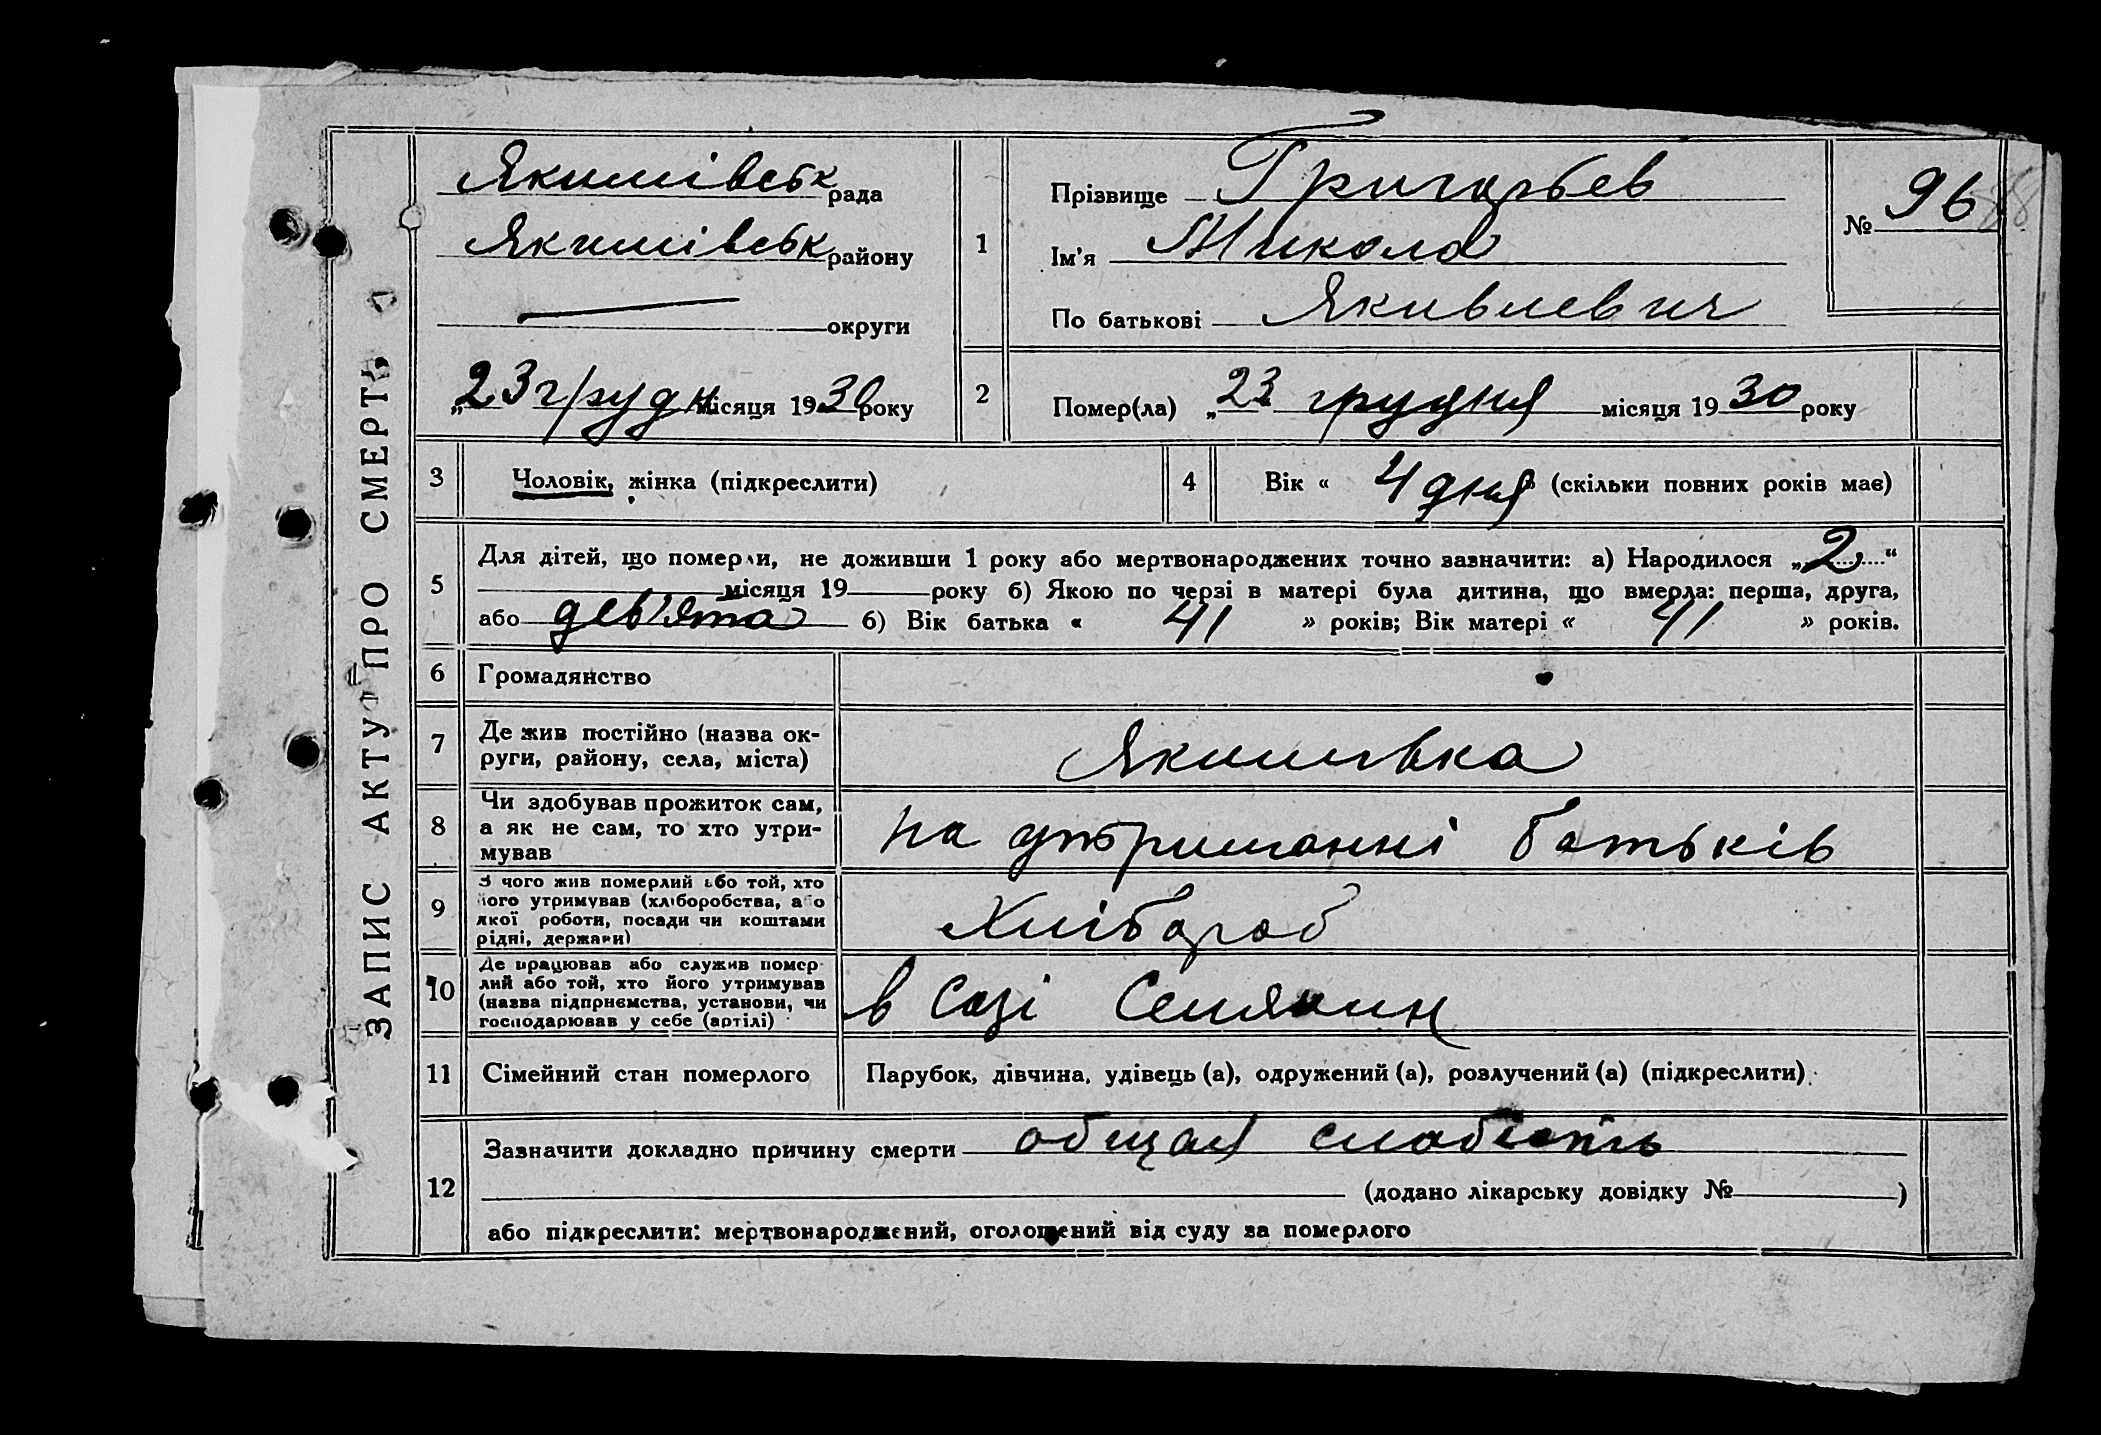 ЗАПИС АКТУ ПРО СМЕРТЬ
Якимівськ рада
Якимівськ району
округи
„23 грудн місяця 1930 року
1
Прізвище Григорьев
Ім'я Микола
По батькові Яківлевич
№ 96
2
Помер(ла) „23 грудня місяця 1930 року
3 Чоловік, жінка (підкреслити)
4 Вік « 4 дня » (скільки повних років має)
5 Для дітей, що померли, не доживши 1 року або мертвонароджених точно зазначити: а) Народилося „2“
місяця 19 року б) Якою по черзі в матері була дитина, що вмерла: перша, друга,
або дев'ята б) Вік батька « 41 » років; Вік матері « 41 » років.
6 Громадянство
7 Де жив постійно (назва ок-
руги, району, села, міста)
Якимивка
8 Чи здобував прожиток сам,
а як не сам, то хто утри-
мував
на утриманні батьків
9 З чого жив померлий або той, хто
його утримував (хліборобства, або
якої роботи, посади чи коштами
рідні, держави)
Хлібороб
10 Де працював або служив помер-
лий або той, хто його утримував
(назва підприємства, установи, чи
господарював у себе (артілі)
в Созі Селянин
11 Сімейний стан померлого
Парубок, дівчина, удівець (а), одружений (а), розлучений (а) (підкреслити)
12 Зазначити докладно причину смерти общая слабость
(додано лікарську довідку № )
або підкреслити: мертвонароджений, оголошений від суду за померлого